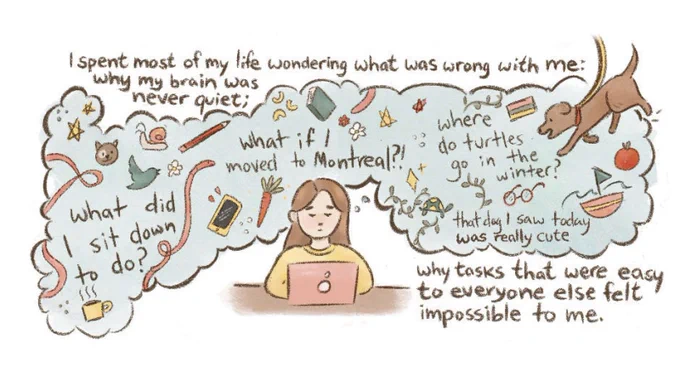 I spent most of my life wondering what was wrong with me:
why my brain was
never quiet;
what did
I sit down
to do?
what if I
moved to Montreal?!
where
do turtles
go in the
winter?
that dog I saw today
was really cute
why tasks that were easy
to everyone else felt
impossible to me.